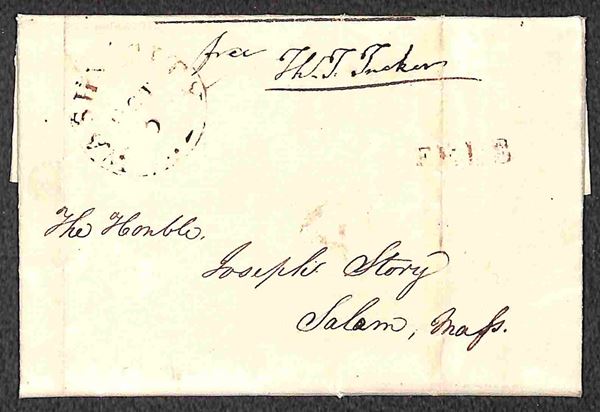 free Th. T. Tucker
The Honble.
Joseph Story
Salem, Mass.